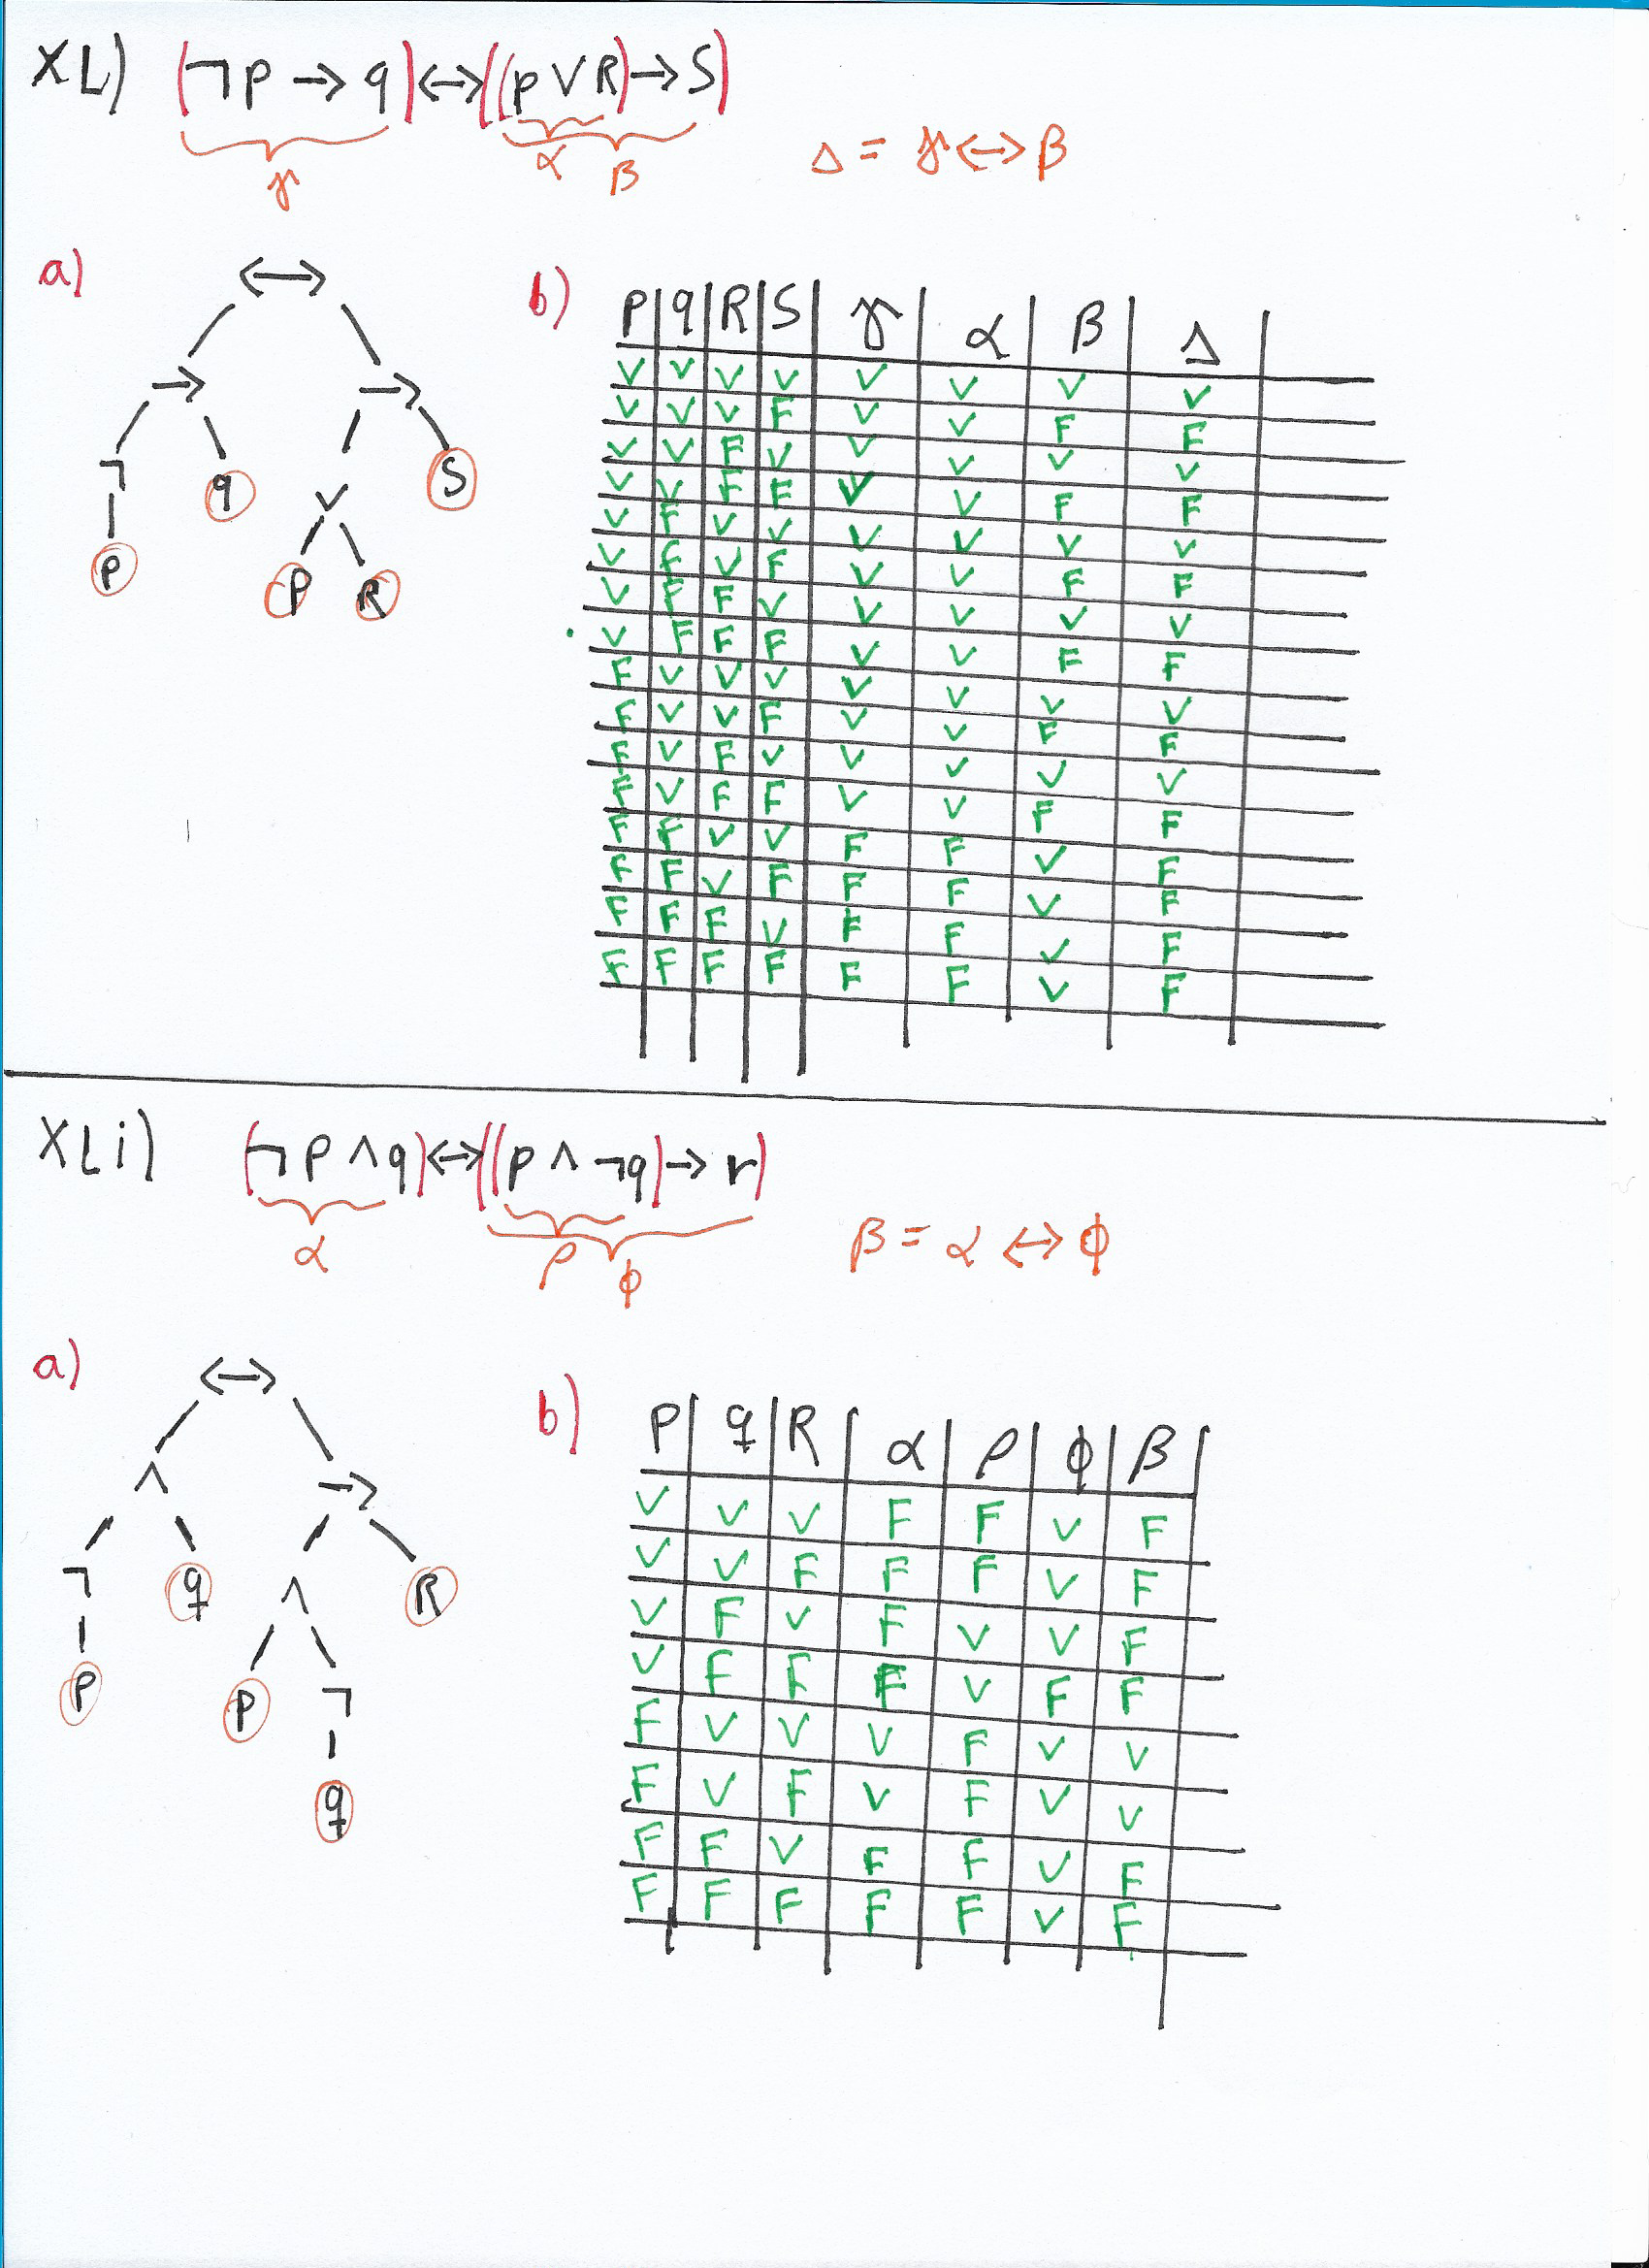 XL) (¬p → q) ↔ ((p ∨ R) → S)
γ α β Δ = γ ↔ β
a) b)
↔
→ →
¬ q ∨ S
P P R
P q R S γ α β Δ
V V V V V V V V
V V V F V V F F
V V F V V V V V
V V F F V V F F
V F V V V V V V
V F V F V V F F
V F F V V V V V
V F F F V V F F
F V V V V V V V
F V V F V V F F
F V F V V V V V
F V F F V V F F
F F V V F F V F
F F V F F F V F
F F F V F F V F
F F F F F F V F
XLi) (¬p ∧ q) ↔ ((p ∧ ¬q) → r)
α ρ ϕ β = α ↔ ϕ
a) b)
↔
∧ →
¬ q ∧ R
P P ¬
q
P q R α ρ ϕ β
V V V F F V F
V V F F F V F
V F V F V V F
V F F F V F F
F V V V F V V
F V F V F V V
F F V F F V F
F F F F F V F